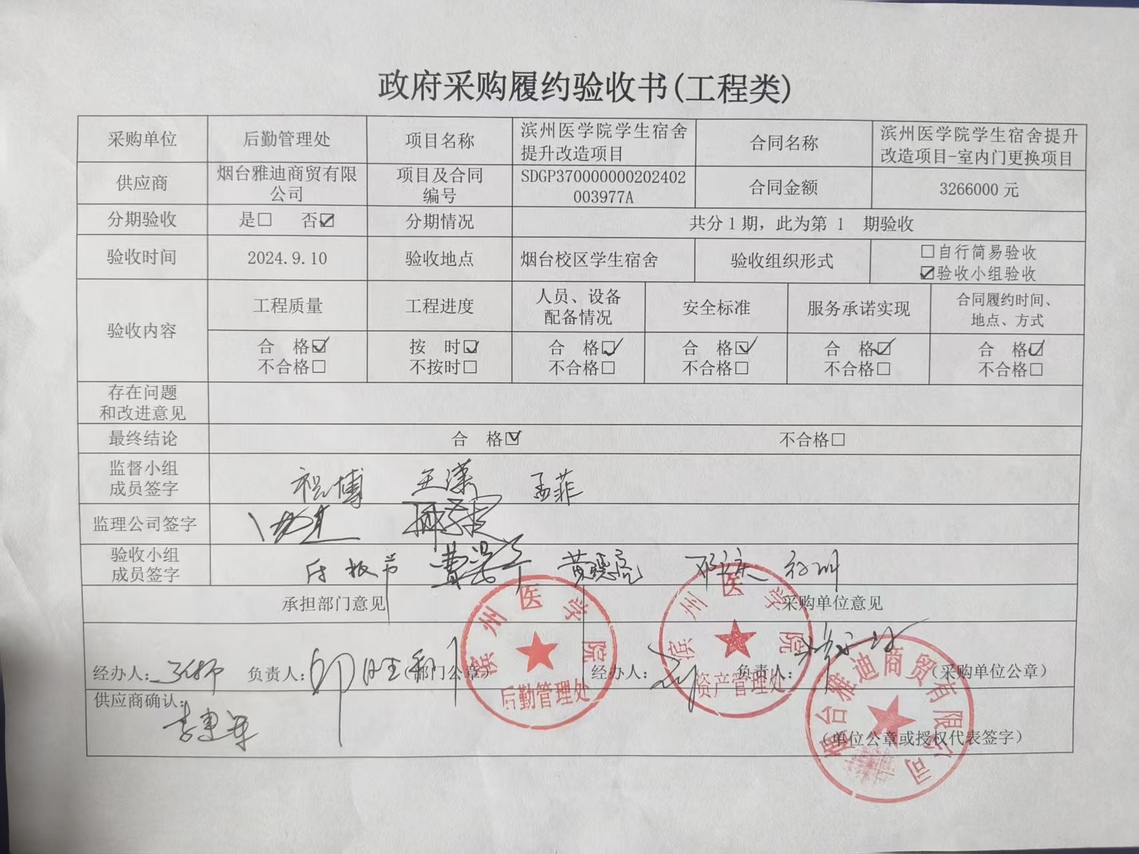 政府采购履约验收书(工程类)
采购单位 后勤管理处 项目名称 滨州医学院学生宿舍 合同名称 滨州医学院学生宿舍提升
提升改造项目 改造项目-室内门更换项目
供应商 烟台雅迪商贸有限 项目及合同 SDGP370000000202402 合同金额 3266000 元
公司 编号 003977A
分期验收 是☐ 否☑ 分期情况 共分 1 期，此为第 1 期验收
验收时间 2024.9.10 验收地点 烟台校区学生宿舍 验收组织形式 ☐自行简易验收
☑验收小组验收
验收内容 工程质量 工程进度 人员、设备 安全标准 服务承诺实现 合同履约时间、
配备情况 地点、方式
合 格☑ 按 时☑ 合 格☑ 合 格☑ 合 格☑ 合 格☑
不合格☐ 不按时☐ 不合格☐ 不合格☐ 不合格☐ 不合格☐
存在问题
和改进意见
最终结论 合 格☑ 不合格☐
监督小组
成员签字 祝博 王潇 孟菲
监理公司签字
验收小组
成员签字 黄晓亮
承担部门意见 采购单位意见
经办人： 负责人： (部门公章) 经办人： 负责人： （采购单位公章）
供应商确认：
（单位公章或授权代表签字）
滨州医学院
后勤管理处
滨州医学院
资产管理处
烟台雅迪商贸有限公司